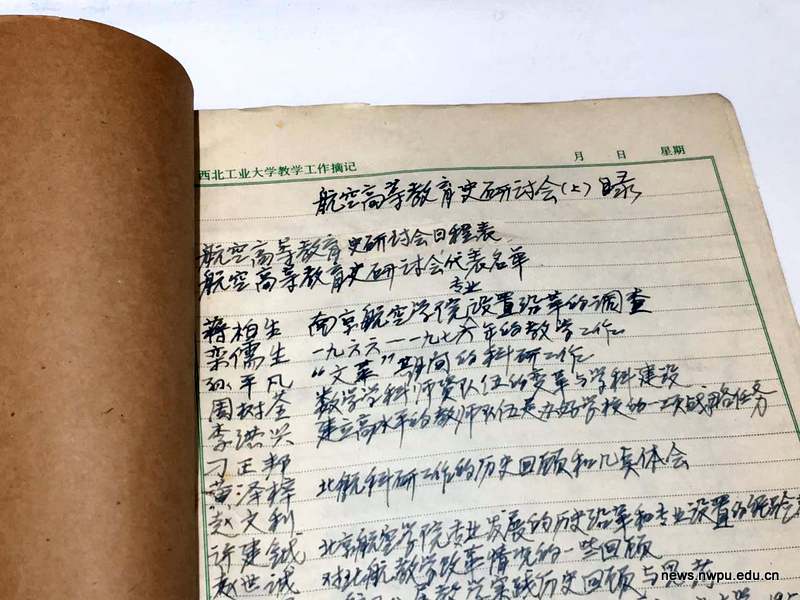 月 日 星期
西北工业大学教学工作摘记
航空高等教育史研讨会(上)目录
航空高等教育史研讨会日程表
航空高等教育史研讨会代表名单
专业
蒋柏生 南京航空学院设置沿革的调查
栾儒生 一九六六—一九七六年的教学工作
孙平凡 “文革”期间的科研工作
周树荃 数学学科师资队伍的变革与学科建设
李洪兴 建立高水平的教师队伍是办好学校的一项战略任务
刁正邦
黄泽梓 北航科研工作的历史回顾和几点体会
赵文利
许建钺 北京航空学院专业发展的历史沿革和专业设置的经验
赵世诚 对北航教学改革情况的一些回顾
教学实践历史回顾与思考
news.nwpu.edu.cn